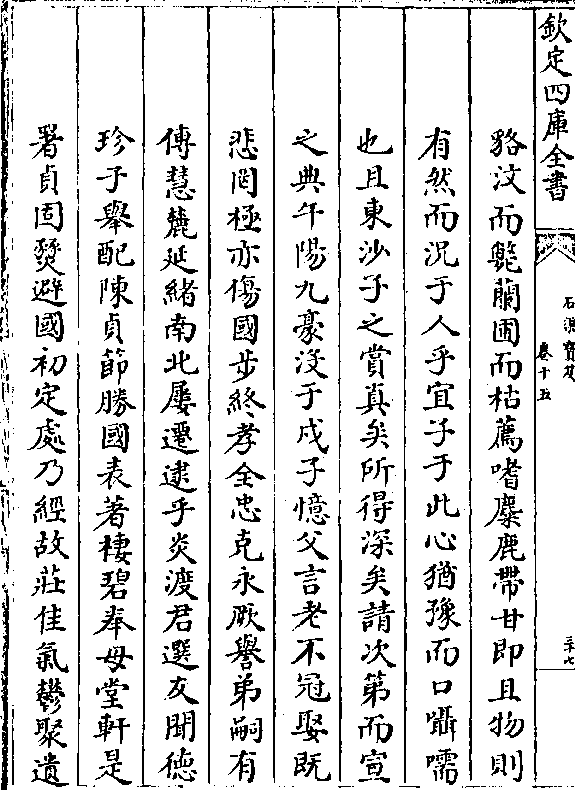 欽定四庫全書
石渠寶笈
卷十五
三十七
貉汶而斃蘭圃而枯薦嗜麋鹿帶甘即且物則
有然而况于人乎宜子于此心猶豫而口囁嚅
也且東沙子之賞真矣所得深矣請次第而宣
之典午陽九豪没于戍子憶父言老不冠娶既
悲罔極亦傷國步終孝全忠克永厥譽弟嗣有
傳慧麓延緒南北屢遷逮乎炎渡君選友聞德
珍子舉配陳貞節勝國表著棲碧奉母堂軒是
署貞固燹避國初定處乃經故莊佳氣鬱聚遺